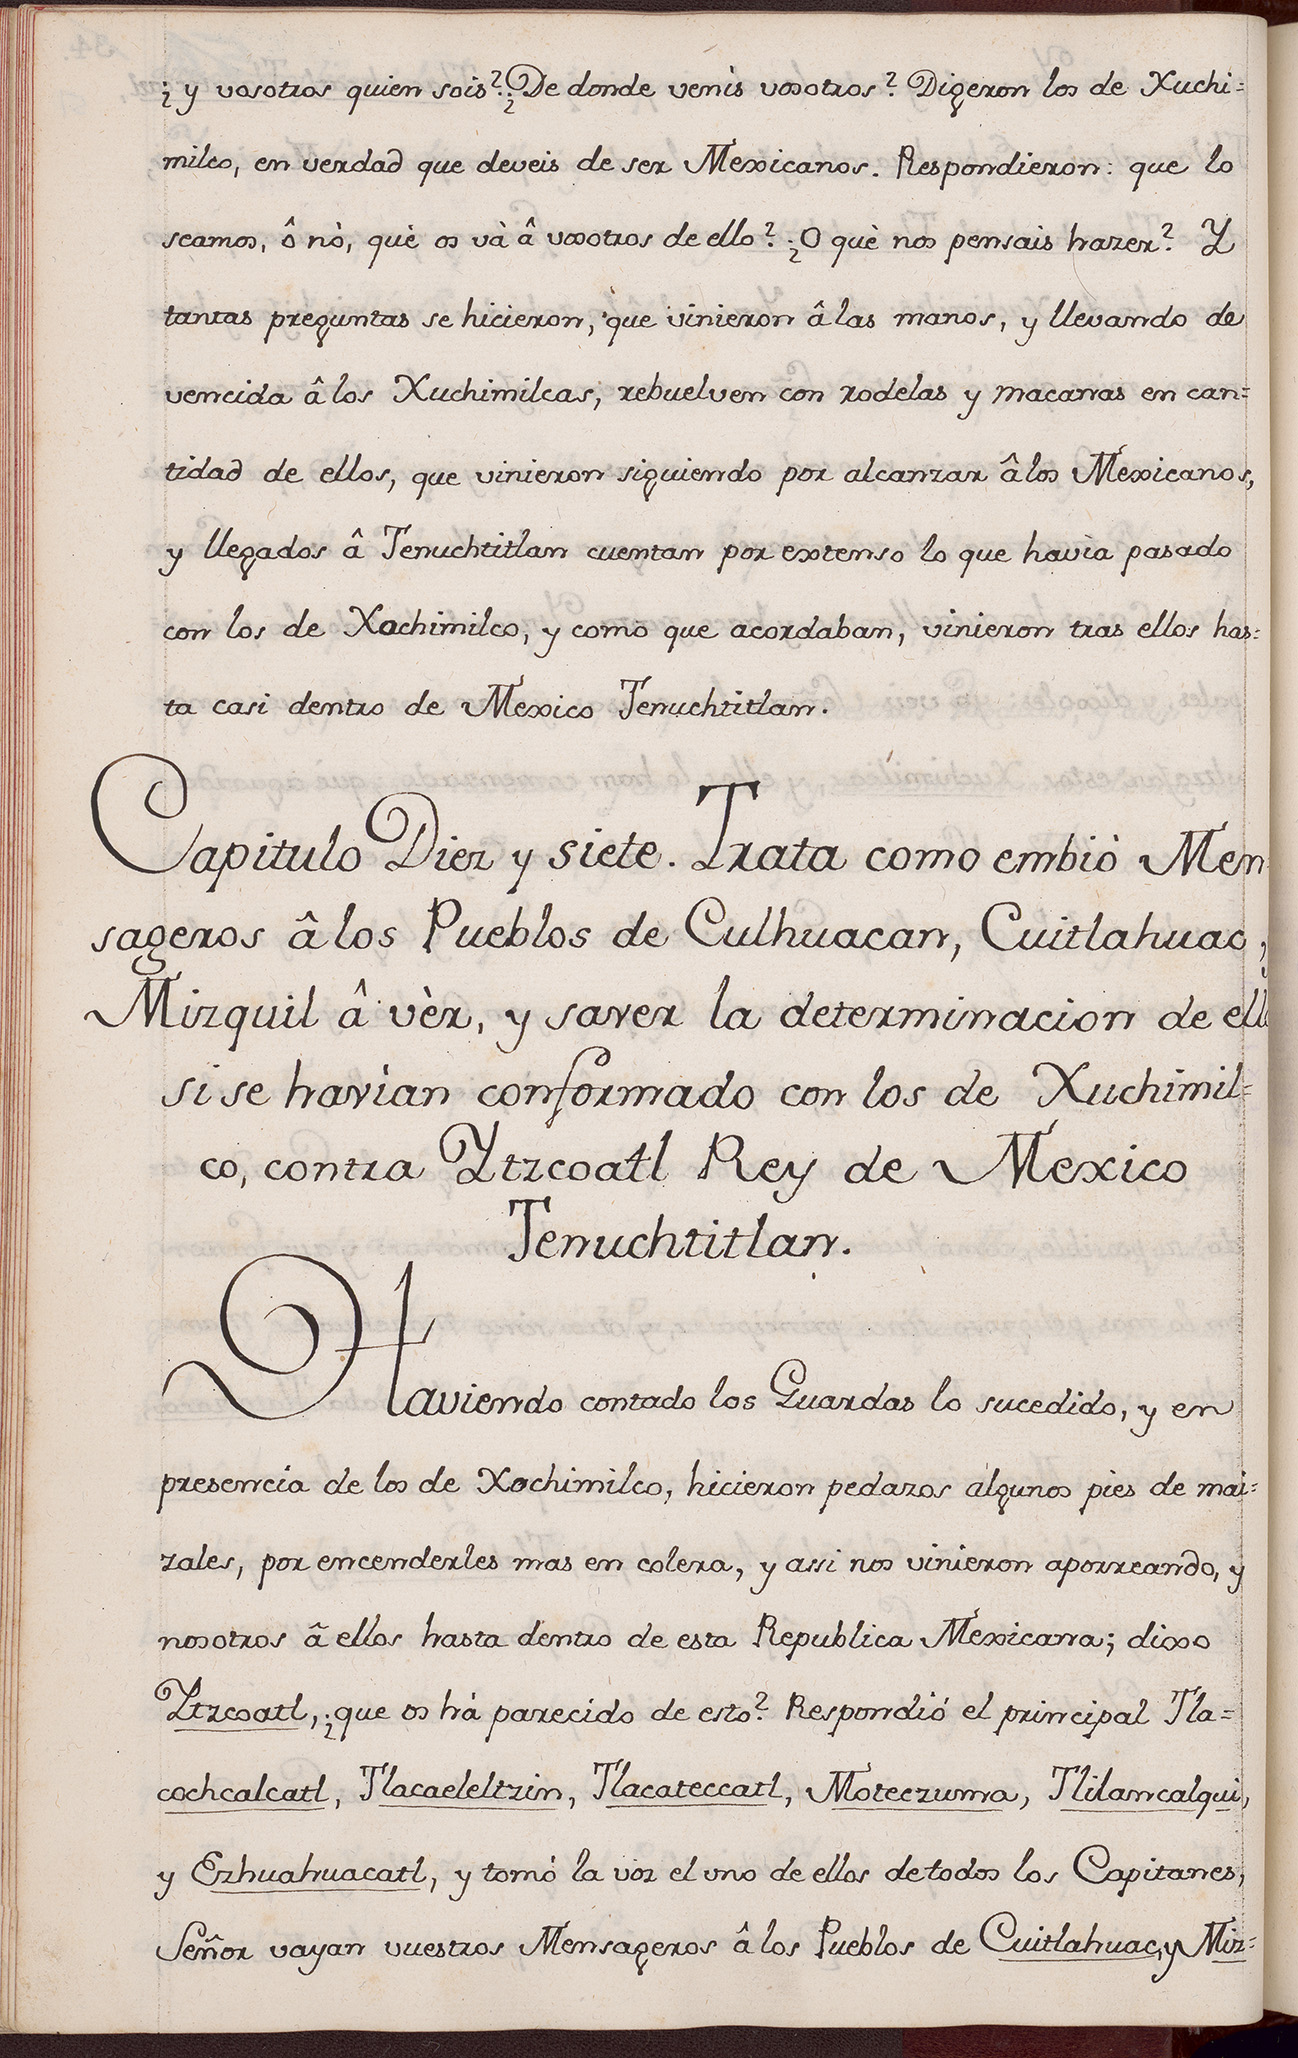 ¿y vosotros quien sois? ¿De donde venis vosotros? Digeron los de Xuchi=
milco, en verdad que deveis de ser Mexicanos. Respondieron: que lo
seamos, ô nò, què os và â vosotros de ello? ¿O què nos pensais hazer? Y
tantas preguntas se hicieron, que vinieron â las manos, y llevando de
vencida â los Xuchimilcas, rebuelven con rodelas y macanas en can=
tidad de ellos, que vinieron siguiendo por alcanzar â los Mexicanos,
y llegados â Tenuchtitlan cuentan por extenso lo que havia pasado
con los de Xochimilco, y como que acordaban, vinieron tras ellos has=
ta casi dentro de Mexico Tenuchtitlan.
Capitulo Diez y siete. Trata como embiò Men
sageros â los Pueblos de Culhuacan, Cuitlahuac,
Mizquil â vèr, y saver la determinacion de ello
si se havian conformado con los de Xuchimil=
co, contra Ytzcoatl Rey de Mexico
Tenuchtitlan.
Haviendo contado los Guardas lo sucedido, y en
presencia de los de Xochimilco, hicieron pedazos algunos pies de mai=
zales, por encenderles mas en colera, y assi nos vinieron aporreando, y
nosotros â ellos hasta dentro de esta Republica Mexicana; dixo
Ytzcoatl, ¿que os hà parecido de esto? Respondió el principal Tla=
cochcalcatl, Tlacaeleltzin, Tlacateccatl, Moteczuma, Tlilancalqui,
y Ezhuahuacatl, y tomó la voz el uno de ellos de todos los Capitanes,
Señor vayan vuestros Mensageros â los Pueblos de Cuitlahuac, y Miz=